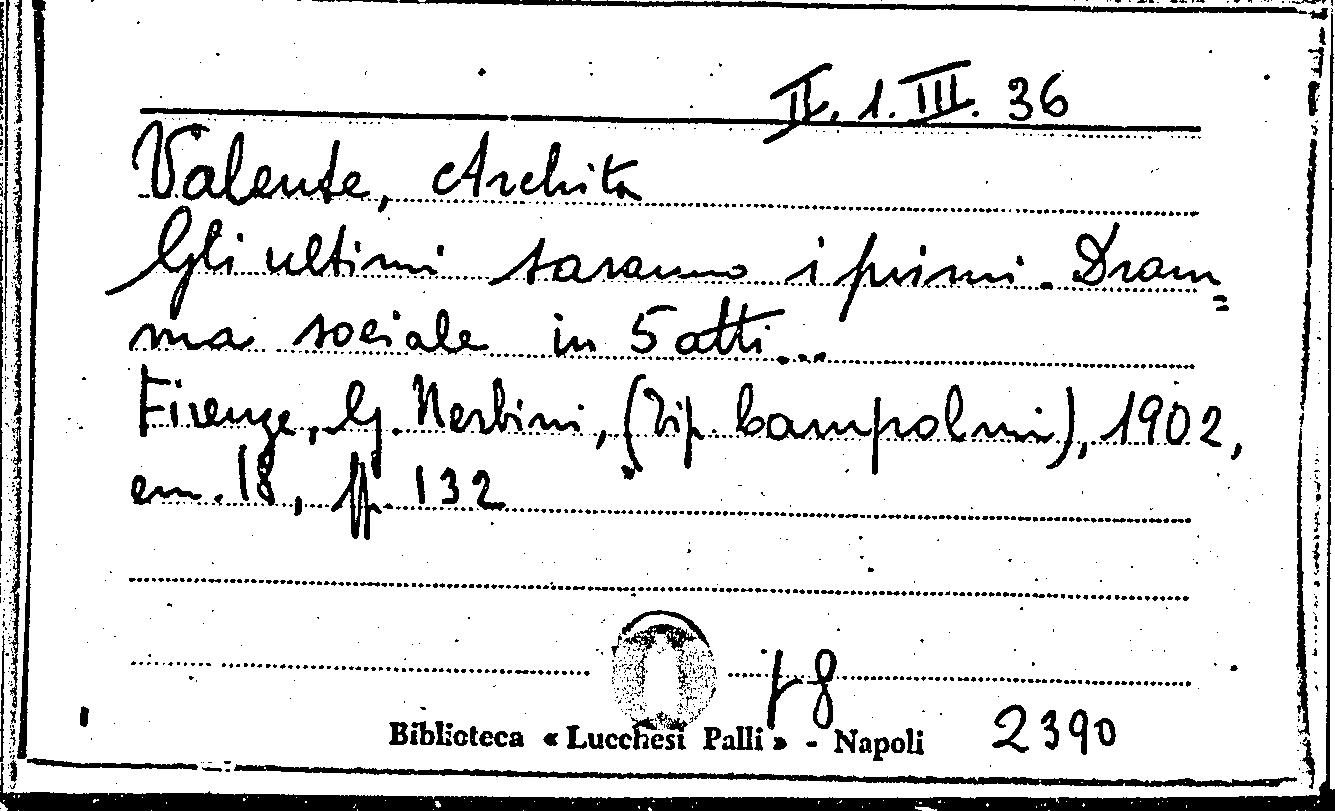 II. 1. III. 36
Valente, Archita
Gli ultimi saranno i primi. Dram=
ma sociale in 5 atti...
Firenze, G. Nerbini, (Tip. Campolmi), 1902,
cm. 18, pp. 132
2390
Biblioteca « Lucchesi Palli » - Napoli